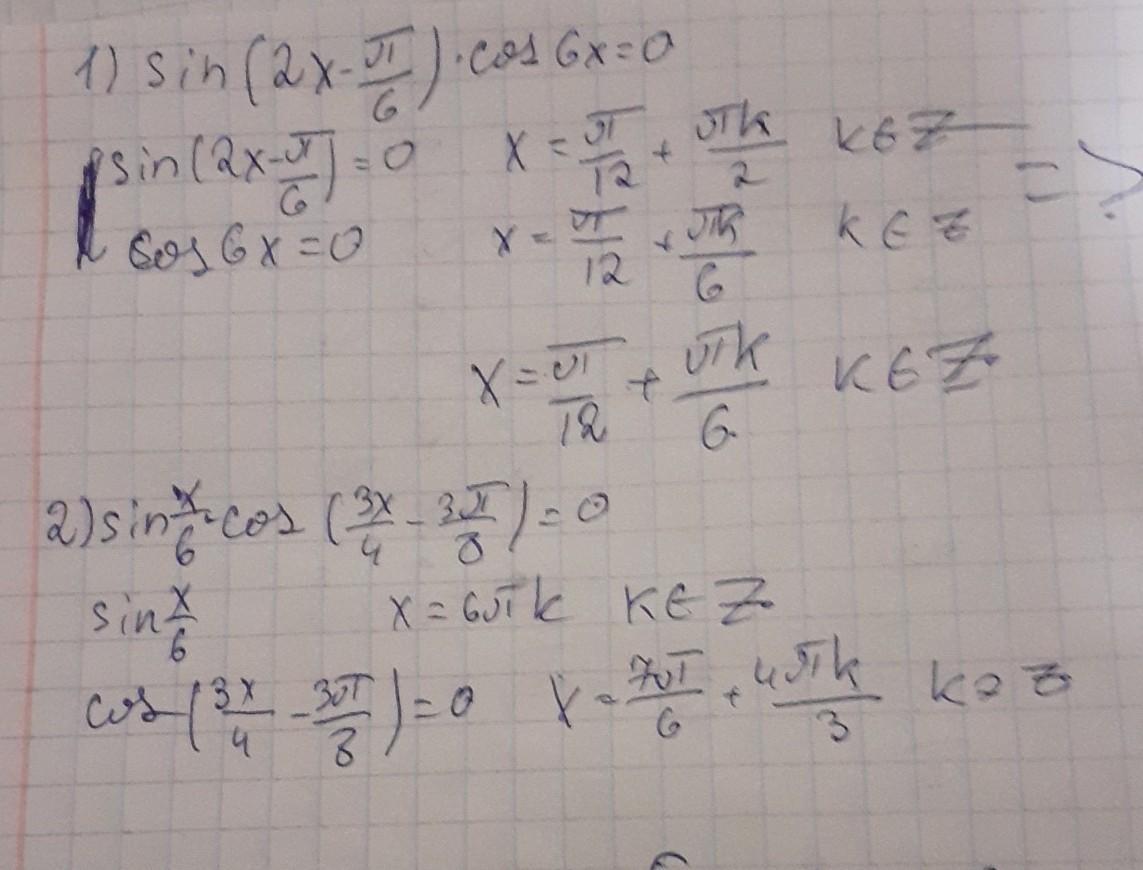 1) sin(2x-π/6)·cos6x=0
sin(2x-π/6)=0 x=π/12+πk/2 k∈Z
cos6x=0 x=π/12+πk/6 k∈Z =>
x=π/12+πk/6 k∈Z
2) sin x/6·cos(3x/4-3π/8)=0
sin x/6 x=6πk k∈Z
cos(3x/4-3π/8)=0 x=7π/6+4πk/3 k∋Z